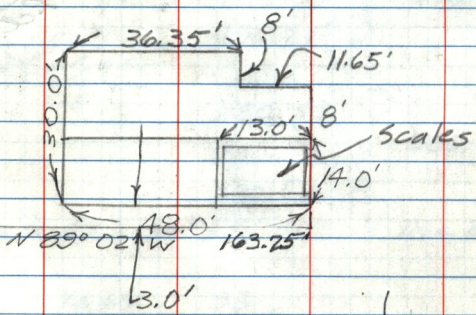 36.35'
8'
11.65'
30.0'
13.0'
8'
Scales
14.0'
48.0'
N 89° 02' W 163.25'
3.0'